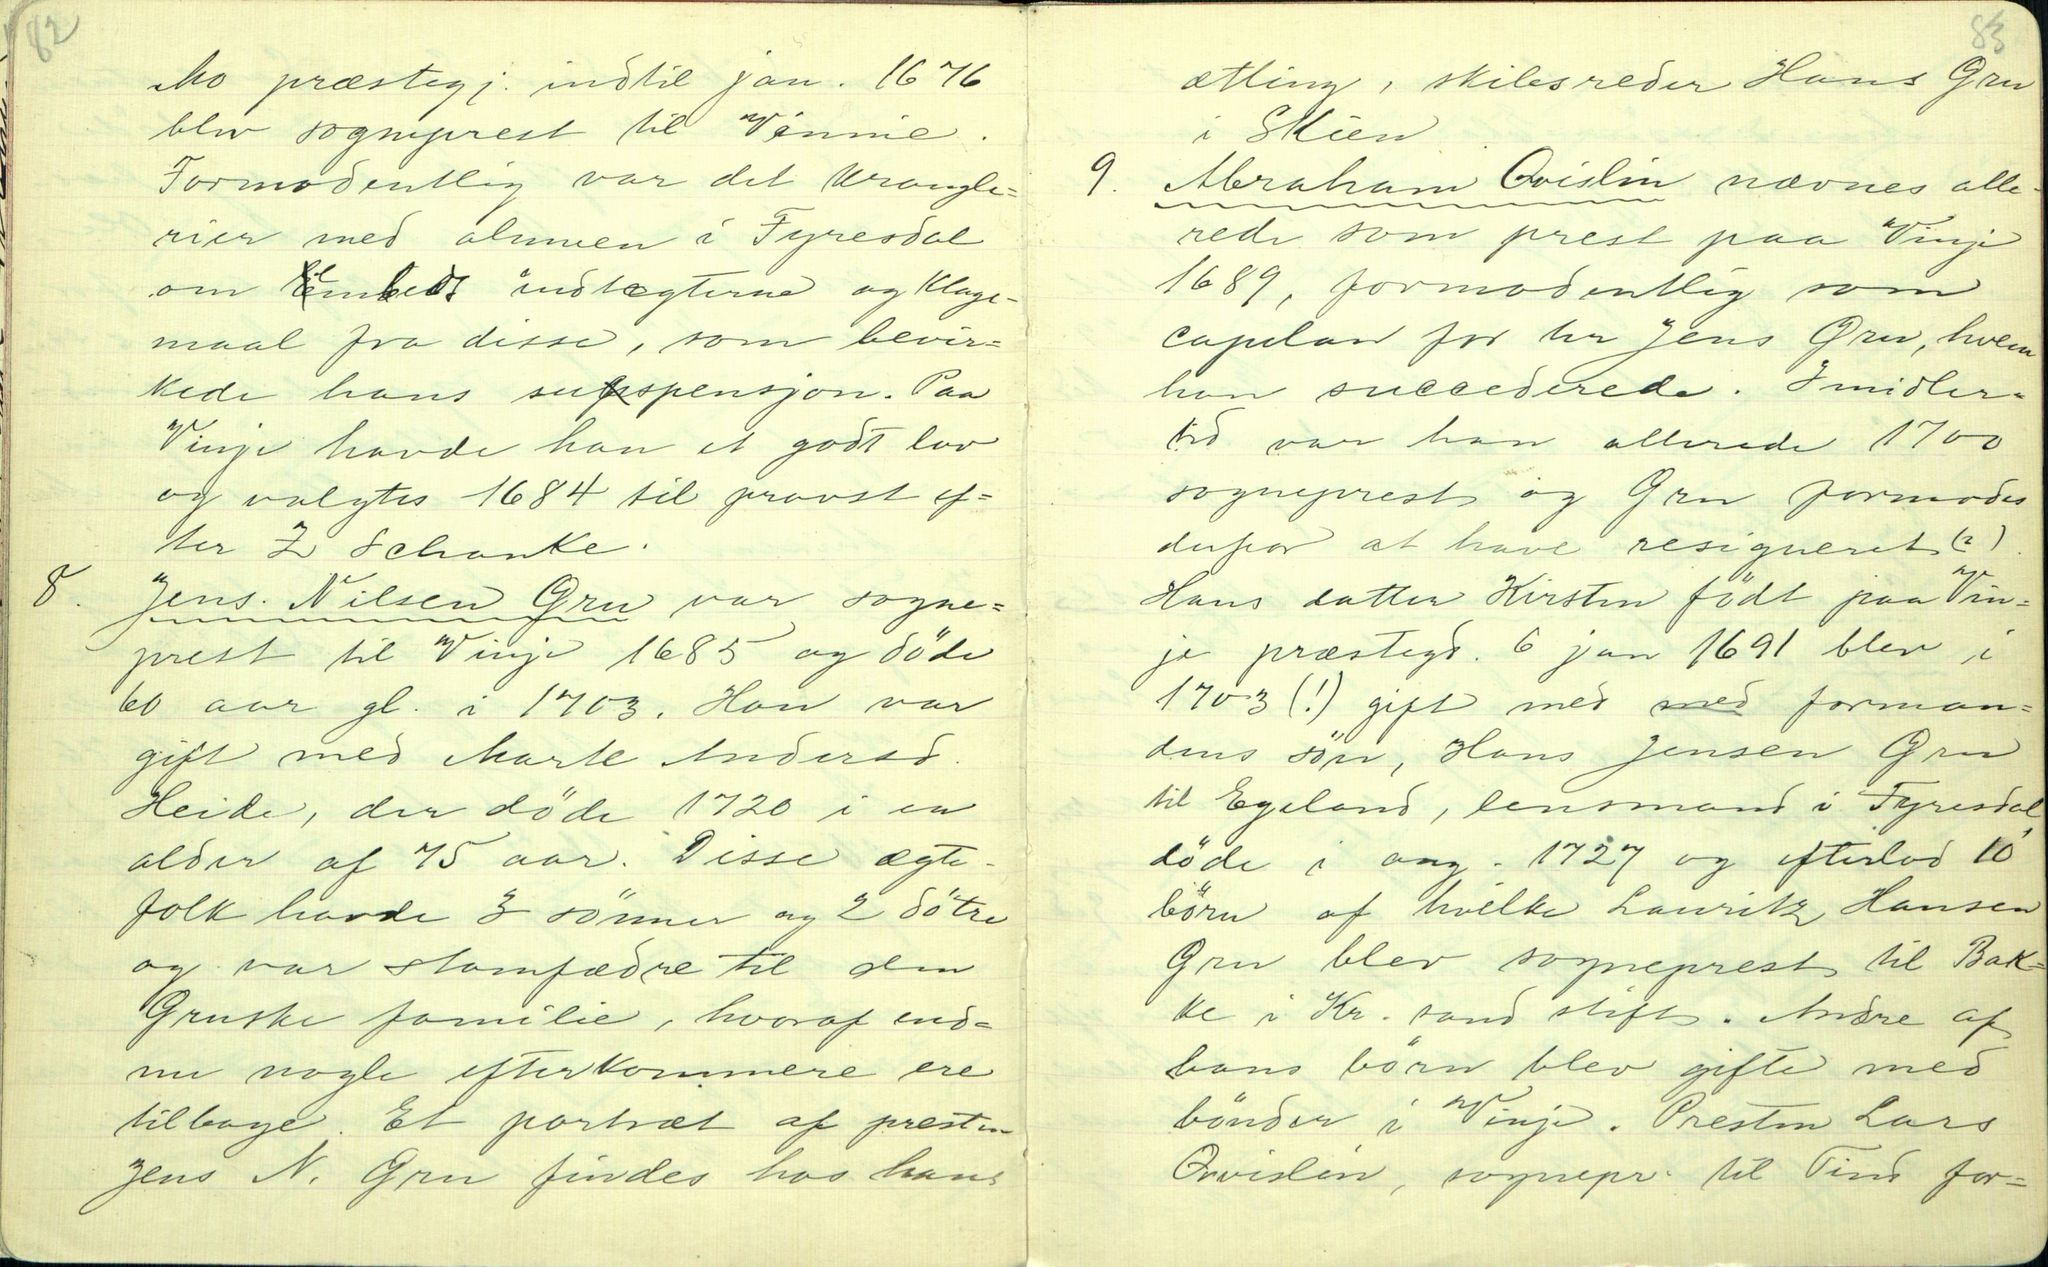 82
Mo præstegj. indtil jan. 1676
blev sogneprest til Vinnie.
Formodentlig var det krangle=
rier med almuen i Fyresdal
om Embeds indtægterne og klage-
maal fra disse, som bevir=
kede hans suspensjon. Paa
Vinje havde han et godt lov
og valgtes 1684 til provst ef=
ter Z Schanke.
8. Jens Nilsen Gru var sogne=
prest til Vinje 1685 og döde
60 aar gl. i 1703. Han var
gift med Marte Andersd.
Heide, der döde 1720 i en
alder af 75 aar. Disse ægte-
folk havde 3 sönner og 2 dötre
og var stamfædre til den
Gruske familie, hvoraf end=
nu nogle efterkommere ere
tilbage. Et portræt af presten
Jens N. Gru findes hos hans
83
ætling, skibsreder Hans Gru
i Skien
9. Abraham Qvislin nævnes alle-
rede som prest paa Vinje
1689, formodentlig som
capelan for hr Jens Gru, hvem
han succederede. Imidler=
tid var han allerede 1700
sogneprest og Gru formodes
derfor at have resigneret (?).
Hans datter Kirsten födt paa Vin=
je præstegd. 6 jan 1691 blev i
1703 (!) gift med med forman=
dens sön, Hans Jensen Gru
til Egeland, lensmand i Fyresdal,
döde i aug. 1727 og efterlod 10
börn af hvilke Lauritz Hansen
Gru blev sogneprest til Bak=
ke i Kr. sand stift. Andre af
hans börn blev gifte med
bönder i Vinje. Presten Lars
Qvislin, sognepr. til Tind for=